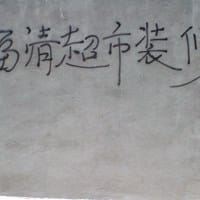 福清超市装修